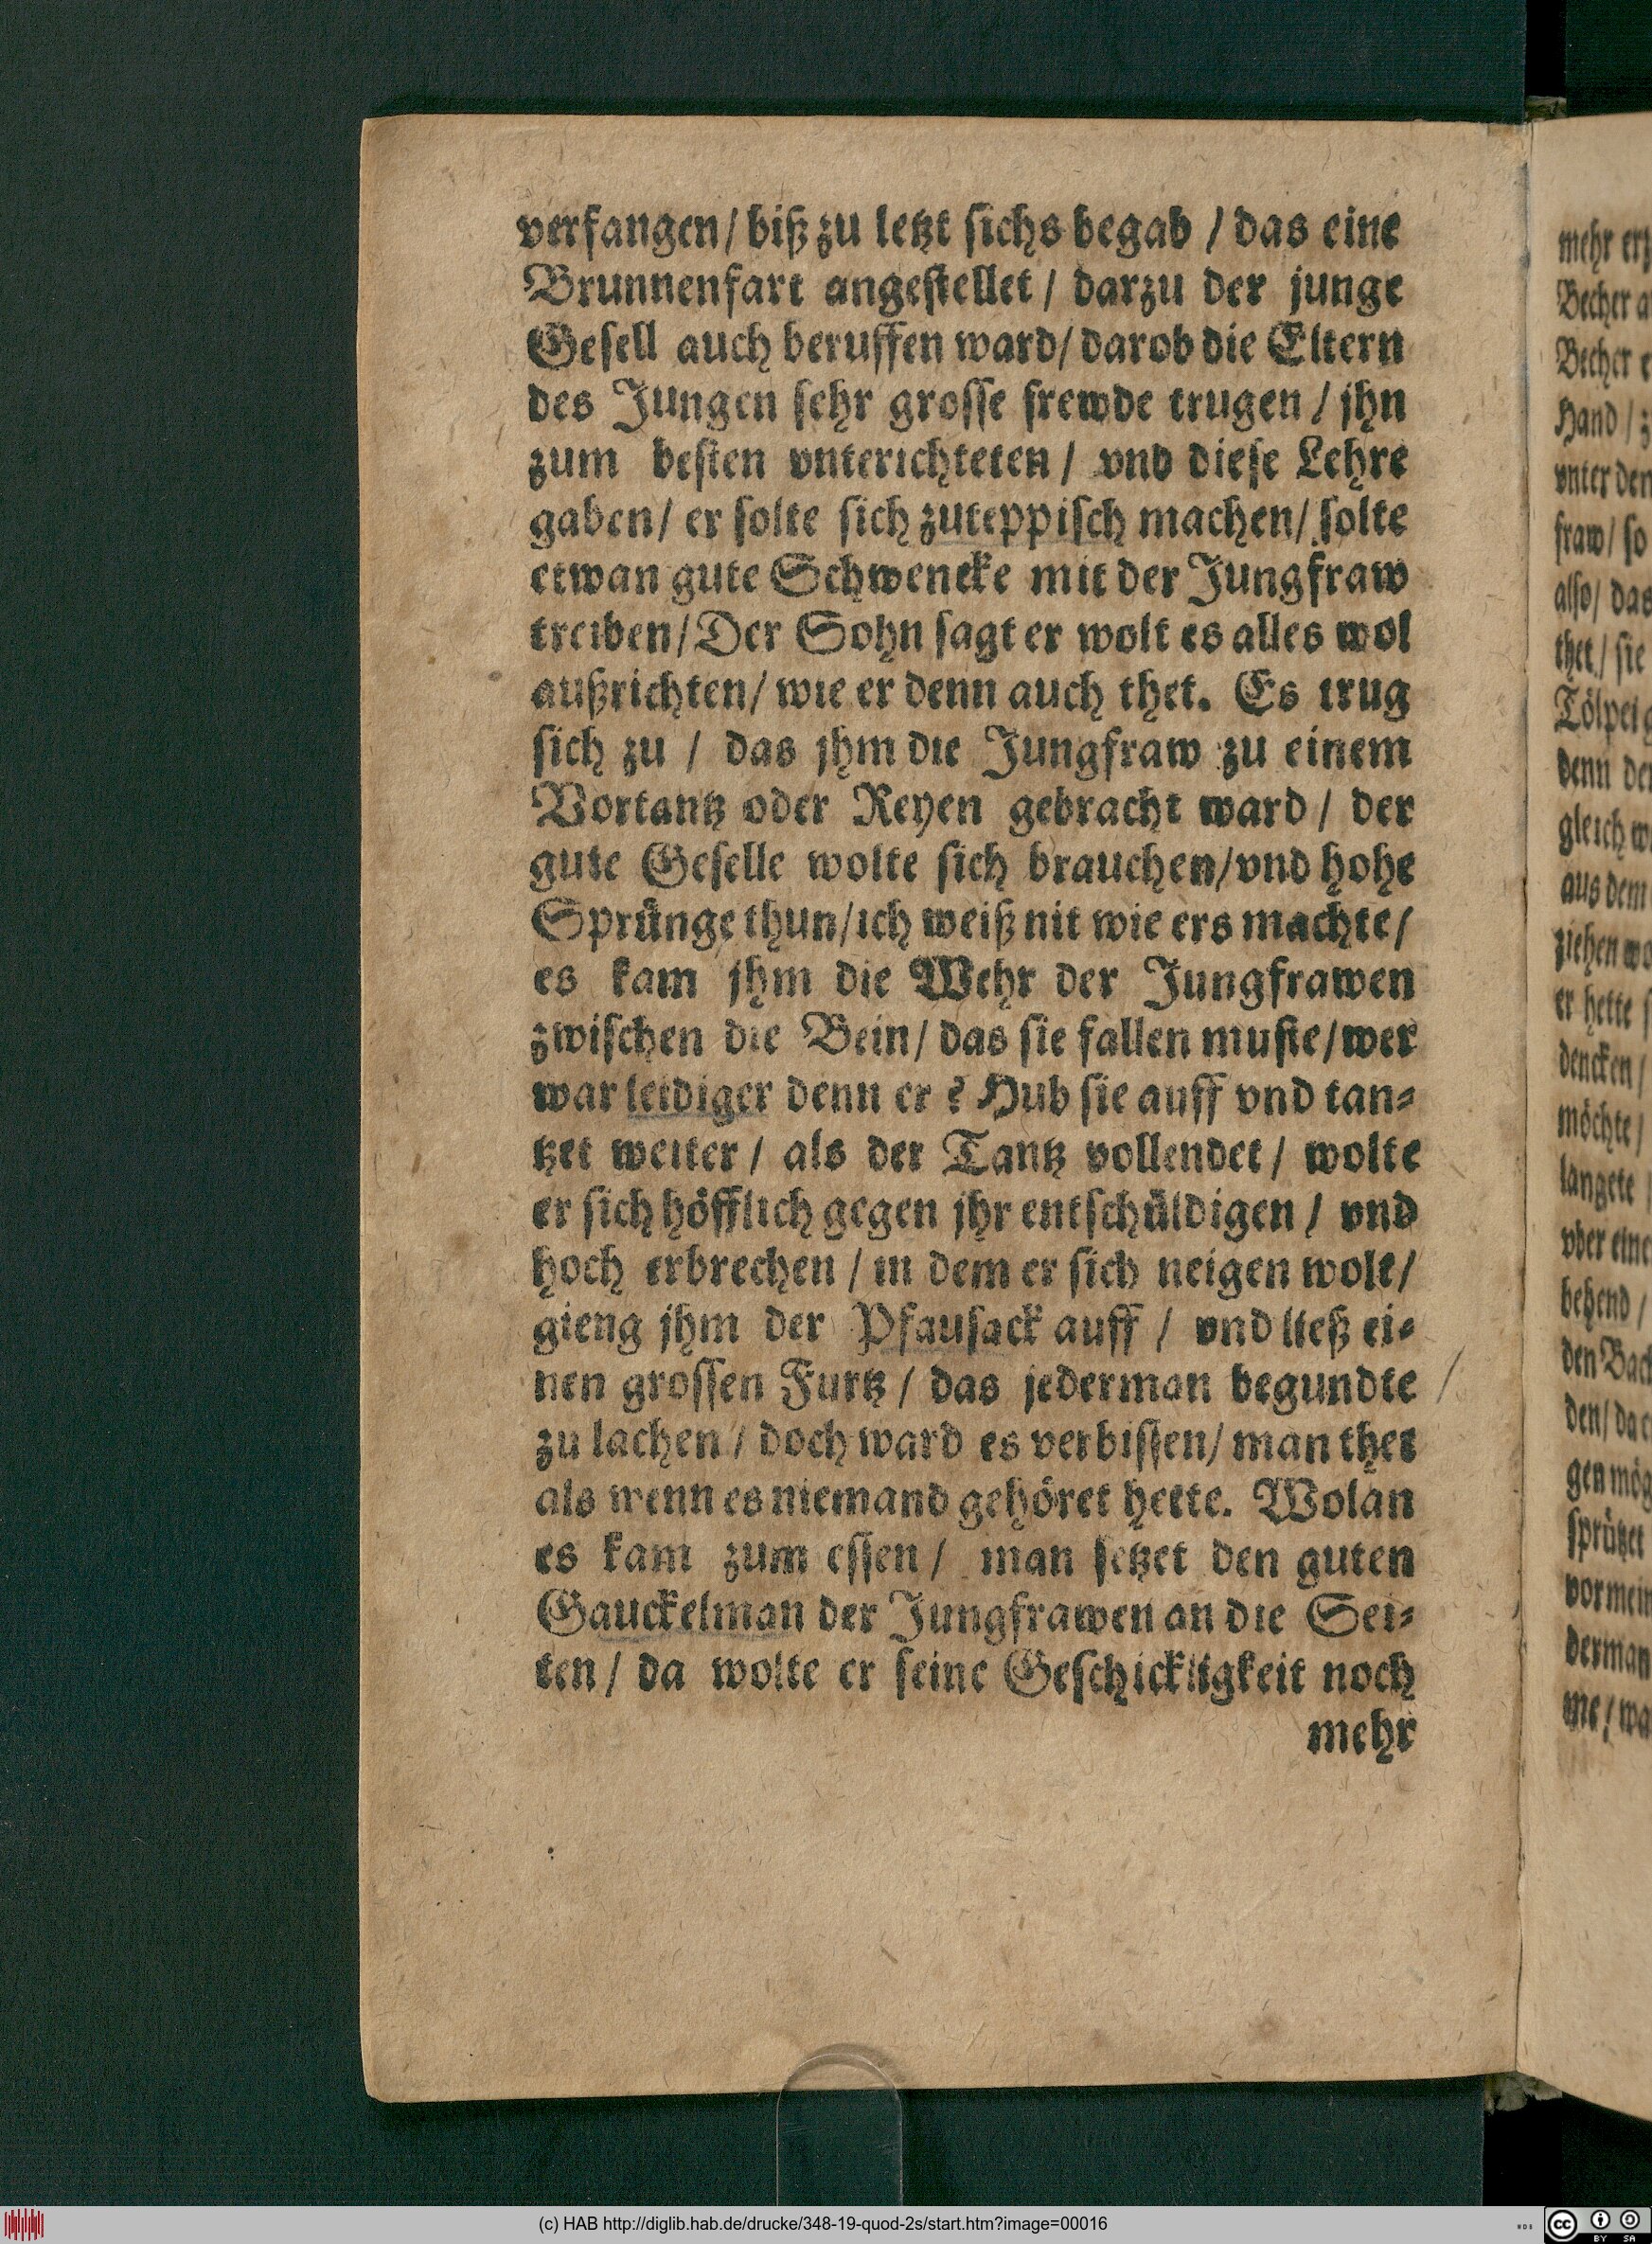 verfangen/ biß zu letzt sichs begab / das eine
Brunnenfart angestellet / darzu der junge
Gesell auch beruffen ward/ darob die Eltern
des Jungen sehr grosse frewde trugen / jhn
zum besten vnterichteten / vnd diese Lehre
gaben/ er solte sich zuteppisch machen/ solte
etwan gute Schwencke mit der Jungfraw
treiben/ Der Sohn sagt er wolt es alles wol
außrichten/ wie er denn auch thet. Es trug
sich zu / das jhm die Jungfraw zu einem
Vortantz oder Reyen gebracht ward / der
gute Geselle wolte sich brauchen/ vnd hohe
Sprünge thun/ ich weiß nit wie ers machte/
es kam jhm die Wehr der Jungfrawen
zwischen die Bein/ das sie fallen muste/ wer
war leidiger denn er? Hub sie auff vnd tan-
tzet weiter / als der Tantz vollendet / wolte
er sich höfflich gegen jhr entschüldigen / vnd
hoch erbrechen / in dem er sich neigen wolt/
gieng jhm der Pfausack auff / vnd ließ ei-
nen grossen Furtz / das jederman begundte
zu lachen / doch ward es verbissen/ man thet
als wenn es niemand gehöret hette. Wolan
es kam zum essen / man setzet den guten
Gauckelman der Jungfrawen an die Sei-
ten / da wolte er seine Geschickligkeit noch
mehr
mehr
Becher
Becher
Hand /
vnter den
fraw/ so
also/ das
thet / sie
denn
gleich
aus dem
ziehen
er hette
dencken /
möchte /
langete
vber eine
behend /
den
den/
gen
sprützet
vor
derman
me /
(c) HAB http://diglib.hab.de/drucke/348-19-quod-2s/start.htm?image=00016
cc BY SA